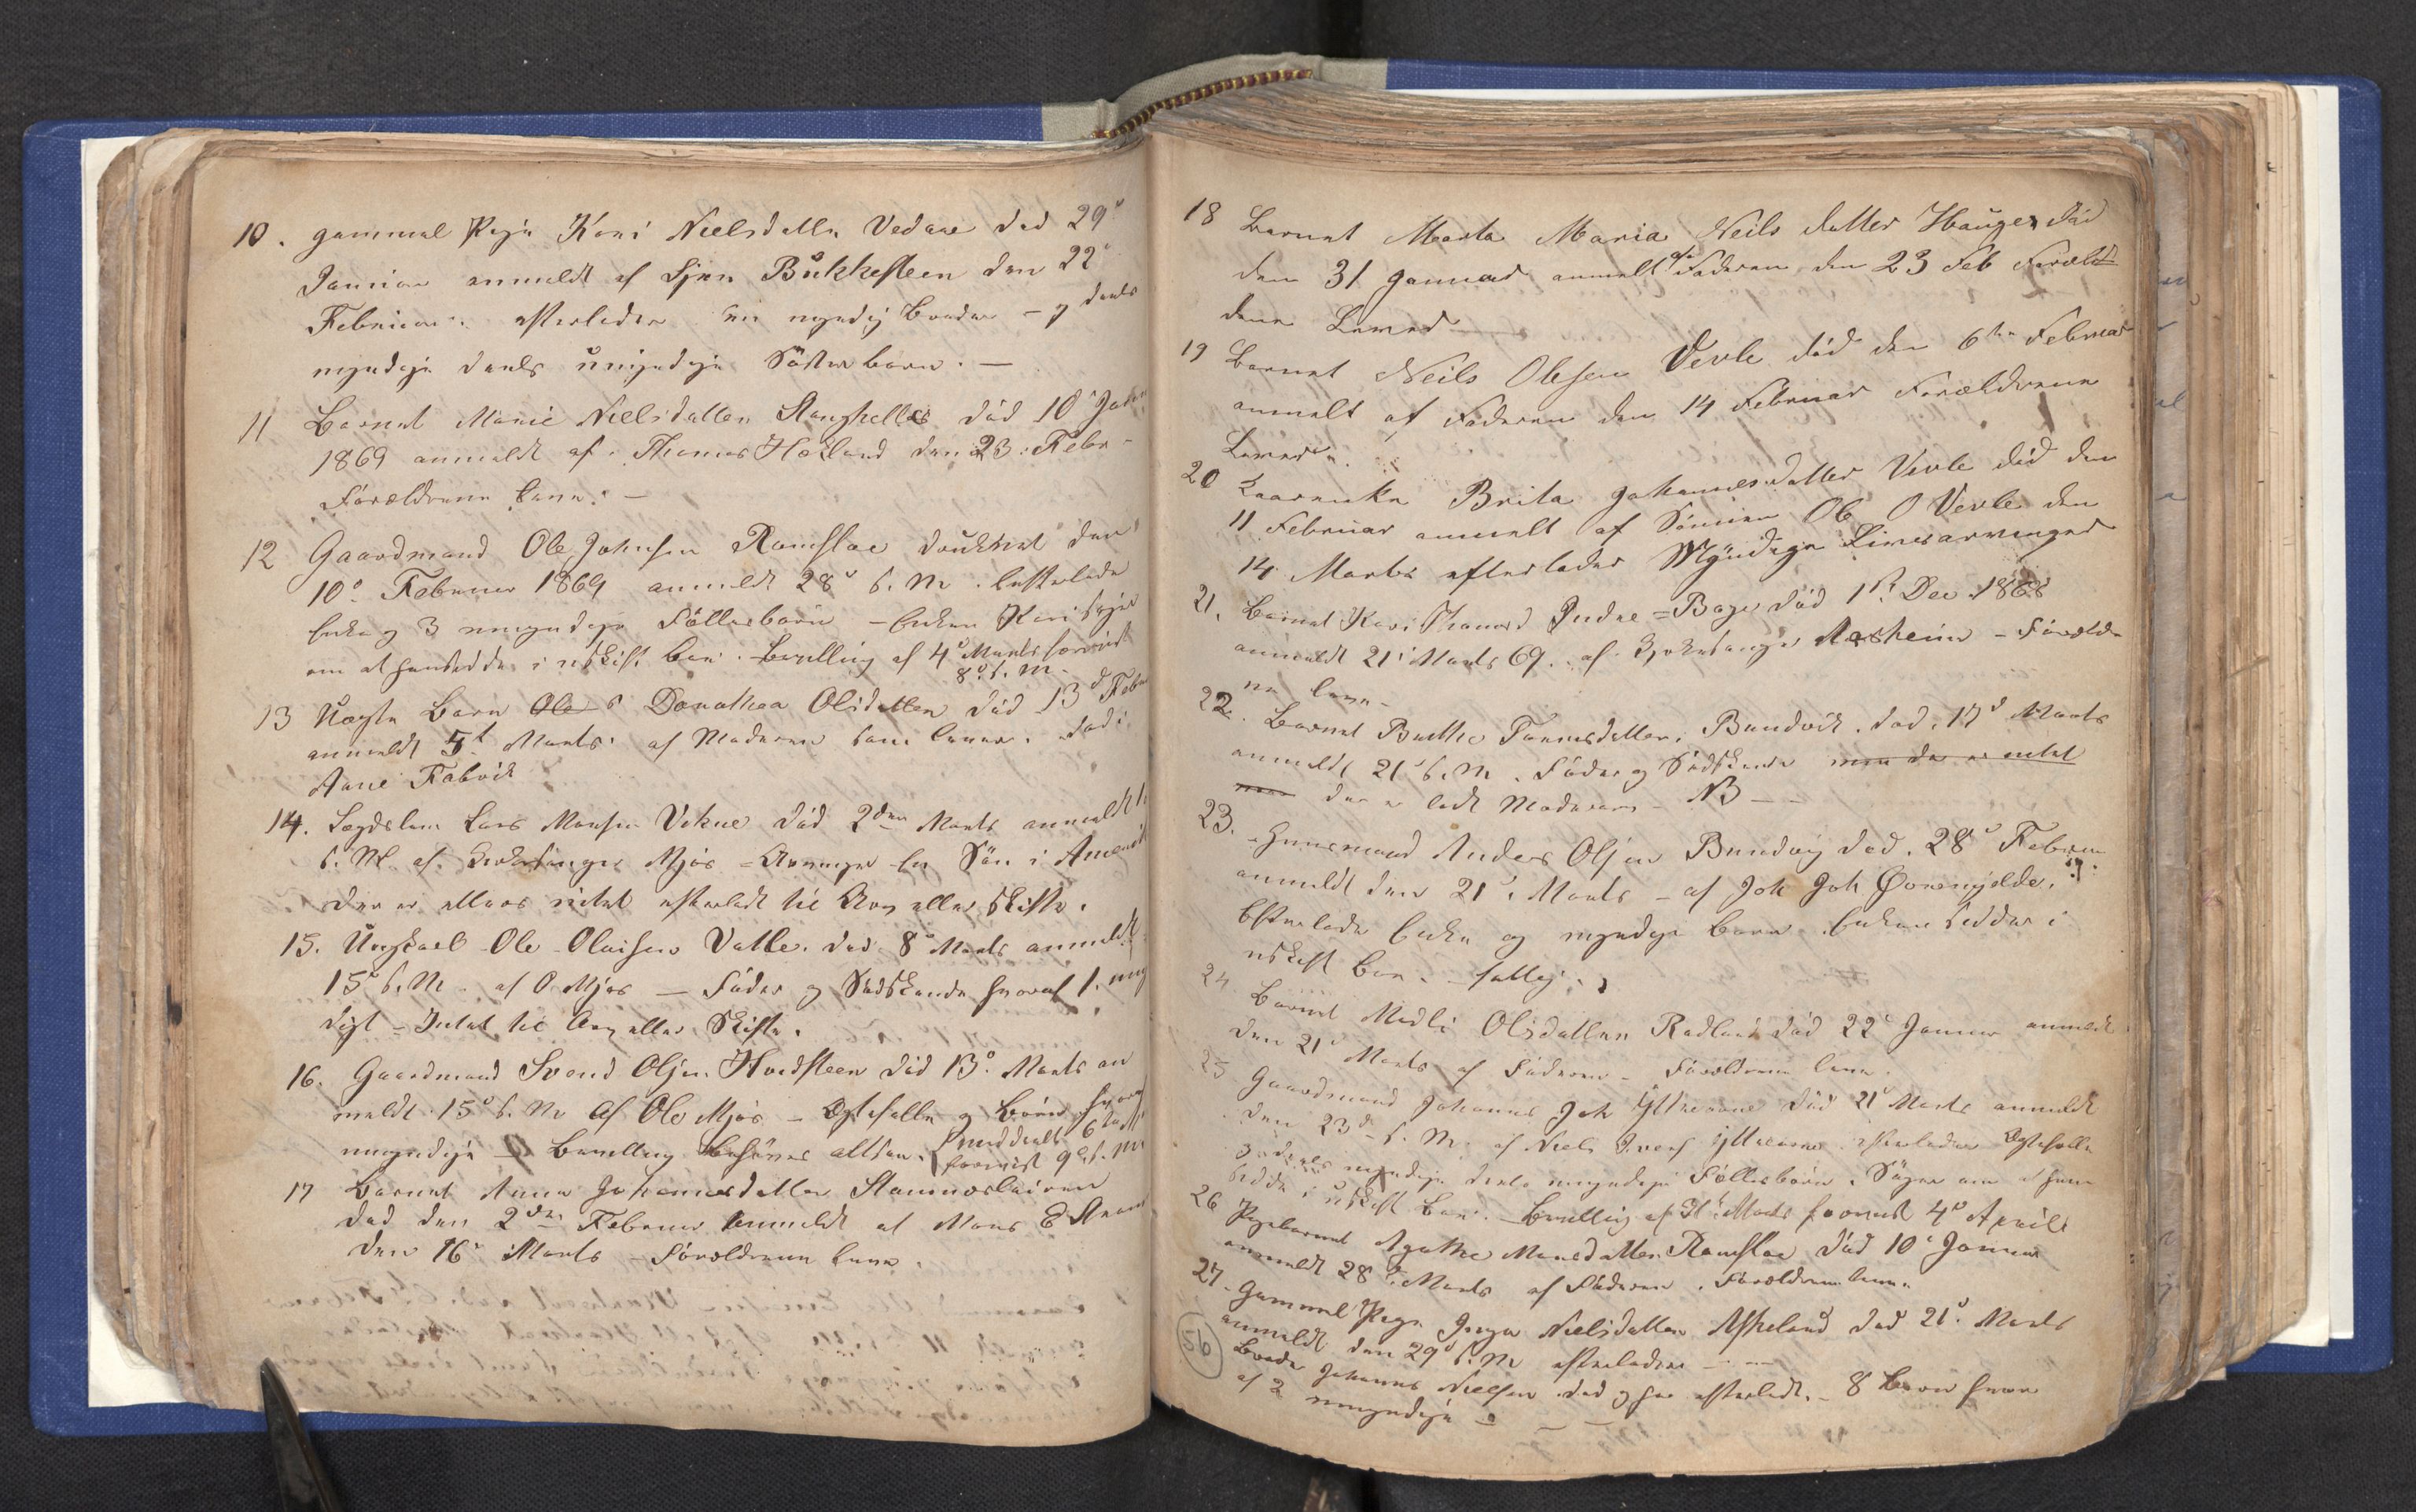 10. gammel Pige Kari Nielsdatter Vedaae død 29d
Januar anmeldt af Sjur Bukkesteen den 22d
Februar. efterlader en myndig Broder - og deels
myndige deels umyndige Søsterbørn. -
11 Barnet Marie Nielsdatter Stanghelle død 10d Jan
1869 anmeldt af Thomas Hosland den 23. Febr -
Forældrene leve. -
12 Gaardmand Ole Johnsen Ramslae druknet den
10d Februar 1869 anmeldt 28d s. M. Efterlader
Enke og 3 umyndige Fællesbørn - Enken Kari søger
om at hensidde i uskift Boe. Bevilling af 4d Marts forevist
8d s. M.
13 Uægte Barn Ole s Dorathea Olsdatter død 13d Febr
anmeldt 5t Marts. af Moderen som lever.
Anne Fabvik
14. Lægdslem Lars Monsen Vikne død 2den Marts anmeldt
s. M. af Kirkesanger Mjøs - Arvinger en Søn i Amerik
der er ellers intet efterladt til Arv eller Skifte.
15. Ungkarl Ole Olaisen Valle død 8d Marts anmeldt
15d s. M. af O Mjøs - Fader og Sødskende hvoraf 1. umyn
digt - Intet til Arv eller Skifte.
16. Gaardmand Svend Olsen Hvidsteen død 13d Marts an
meldt 15d s. M. af Ole Mjøs - Ægtefælle og Børn hvoraf
umyndige - Bevilling behøves altsaa. meddeelt 6
forevist 9d s. M.
17 Barnet Anna Johannesdatter Stamnesleiren
død den 2den Februar anmeldt af Mons E Stam
den 16d Marts - Forældrene leve.
18 Barnet Marta Maria Neils datter Hauge død
den 31 Januar anmelt af Faderen den 23 Feb Foræld
dene Lever
19 Barnet Neils Olesen Vevle död den 6te Februar
anmelt af Faderen den 14 Februar Forældrene
Lever
20 Kaarenke Brita Johannesdatter Vevle död den
11 Februar anmelt af Sønnen Ole O Vevle den
14 Marts efterlader Myndige Livesarvinger
21. Barnet Kari Thomasd Indre = Boge død 1st Dec. 1868
anmeldt 21d Marts 69. af Kirkesanger Aasheim - Forældre
ne leve -
22. Barnet Barthe Tormodsdatter, Bundvik. død. 17d Marts
anmeldt 21d s. M. Fader og Sødskende men der er intet
der er ladt Moderarv - NB - -
23. Huusmand Anders Olsen Bundvig død. 28d Februar
anmeldt den 21d Marts - af Joh Joh Øvremjelde.
Efterlader Enke og myndige Børn. Enken sidder i
uskift Boe. - fattig.
24 Barnet Madli Olsdatter Rødland død 22d Januar anmeldt
den 21d Marts af Faderen - Forældrene leve.
25 Gaardmand Johannes Joh Yttreaarne død 21d Marts anmeldt
den 23d s. M. af Niels Ivers Yttreaarne. efterlader Ægtefælle
3 deels myndige deels umyndige Fællesbørn. Søger om at hen
sidde i uskift Boe. - Bevilling af 31t Marts forevist 4d April
26 Pigebarnet Agathe Monsdatter Ramslae død 10d Januar
anmeldt 28d Marts af Faderen. Forældrene leve.
27. Gammel Pige Inga Nielsdatter Askeland død 21d. Marts
anmeldt den 29d s. M efterlader - -
Broder Johannes Nielsen død og har efterladt. - 8 Børn hvor
af 2 umyndige -
56